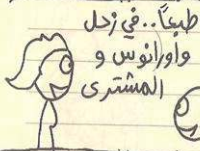 طبعاً..في زحل
واورانوس و
المشترى